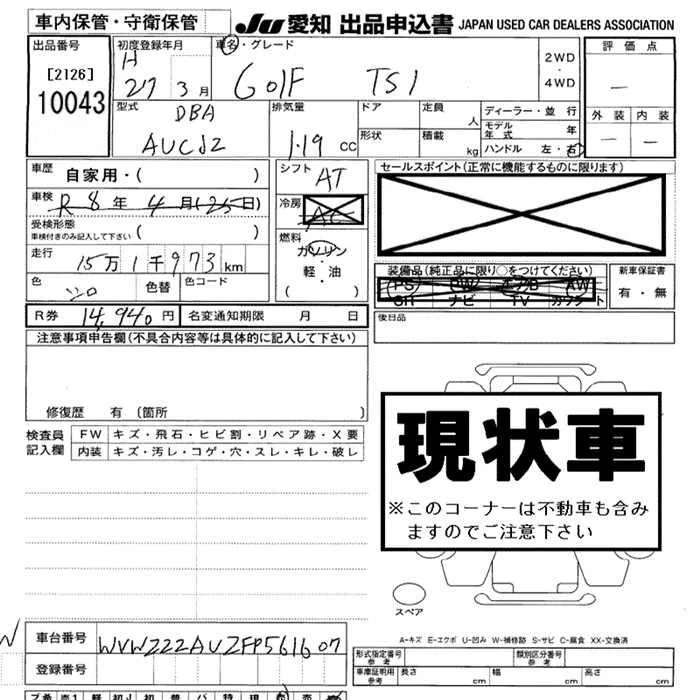 車内保管・守衛保管
JU 愛知 出品申込書 JAPAN USED CAR DEALERS ASSOCIATION
出品番号
[2126]
10043
初度登録年月
H
27 3月
車名・グレード
GolF TSI
2WD
・
4WD
評価点
—
外装 内装
— —
型式 DBA
AUCJZ
排気量
1.19 cc
ドア
形状
定員 人
積載 kg
ディーラー・並行
モデル年式 年
ハンドル 左・右
車歴 自家用・( )
車検 R 8年 4月(25日)
受検形態
車検付きのみ記入して下さい ( )
走行 15万1千973km
色 シロ 色替 色コード
シフト AT
冷房 AC
燃料 ガソリン
・
軽・油
( )
セールスポイント(正常に機能するものに限ります)
装備品(純正品に限り○をつけてください)
PS PW エアB AW
SR ナビ TV カワシート
新車保証書
有・無
R券 14,940円 名変通知期限 月 日
後日品
注意事項申告欄(不具合内容等は具体的に記入して下さい)
修復歴 有 [箇所 ]
検査員記入欄
FW キズ・飛石・ヒビ割・リペア跡・X要
内装 キズ・汚レ・コゲ・穴・スレ・キレ・破レ
現状車
※このコーナーは不動車も含み
ますのでご注意下さい
スペア
A-キズ E-エクボ U-凹み W-補修跡 S-サビ C-腐食 XX-交換済
車台番号 WVWZZZAUZFP561607
登録番号
形式指定番号
参考
類別区分番号
参考
車庫証明用
参考
長さ cm 幅 cm 高さ cm